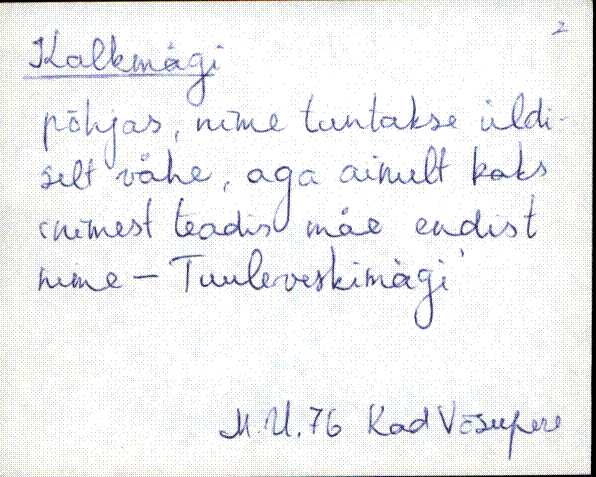 2
Kalkmägi
põhjas, nime tuntakse üldi-
selt vähe, aga ainult kaks
inimest teadis mäe endist
nime – Tuuleveskimägi
M.U.76 Kad Võsupere